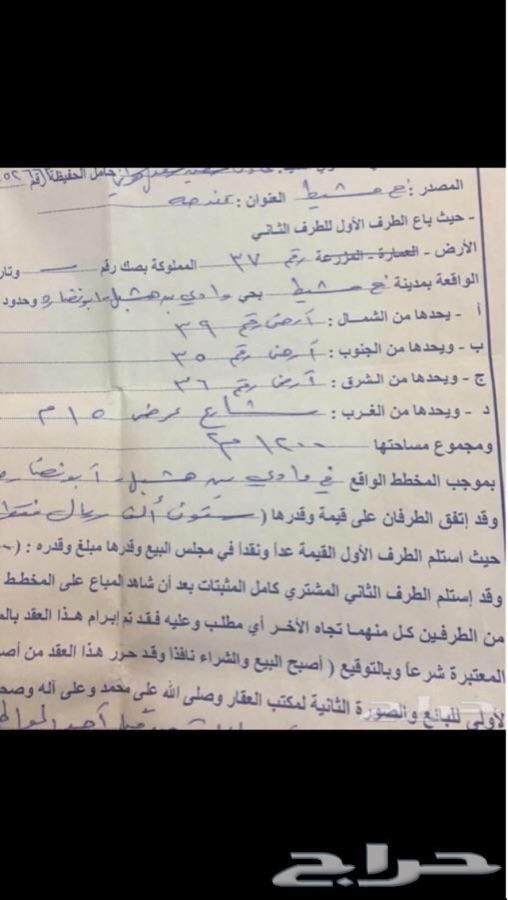 حامل الحفيظة رقم
المصدر : خ مشيط العنوان : عندمه
- حيث باع الطرف الأول للطرف الثاني
الأرض - العمارة - المزرعة رقم ٣٧ المملوكة بصك رقم — وتار
الواقعة بمدينة خ مشيط بحي وادي بن هشبل - ابو نضاره وحدود
أ - يحدها من الشمال : أرض رقم ٣٩
ب - ويحدها من الجنوب : أرض رقم ٣٥
ج - ويحدها من الشرق : أرض رقم ٣٦
د - ويحدها من الغرب : شارع عرض ١٥ م
ومجموع مساحتها ١٢٠٠ م٢
بموجب المخطط الواقع في وادي بن هشبل - أبو نضا
وقد إتفق الطرفان على قيمة وقدرها ( ستون ألف ريال فقط
حيث استلم الطرف الأول القيمة عداً ونقداً في مجلس البيع وقدرها مبلغ وقدره : (
وقد إستلم الطرف الثاني المشتري كامل المثبتات بعد أن شاهد المباع على المخطط
من الطرفين كل منهما تجاه الآخر أي مطلب وعليه فقد تم إبرام هذا العقد بالم
المعتبرة شرعاً وبالتوقيع ( أصبح البيع والشراء نافذاً وقد حرر هذا العقد من أص
لأولى للبائع والصورة الثانية لمكتب العقار وصلى الله على محمد وعلى آله وصح
حراج
حراج